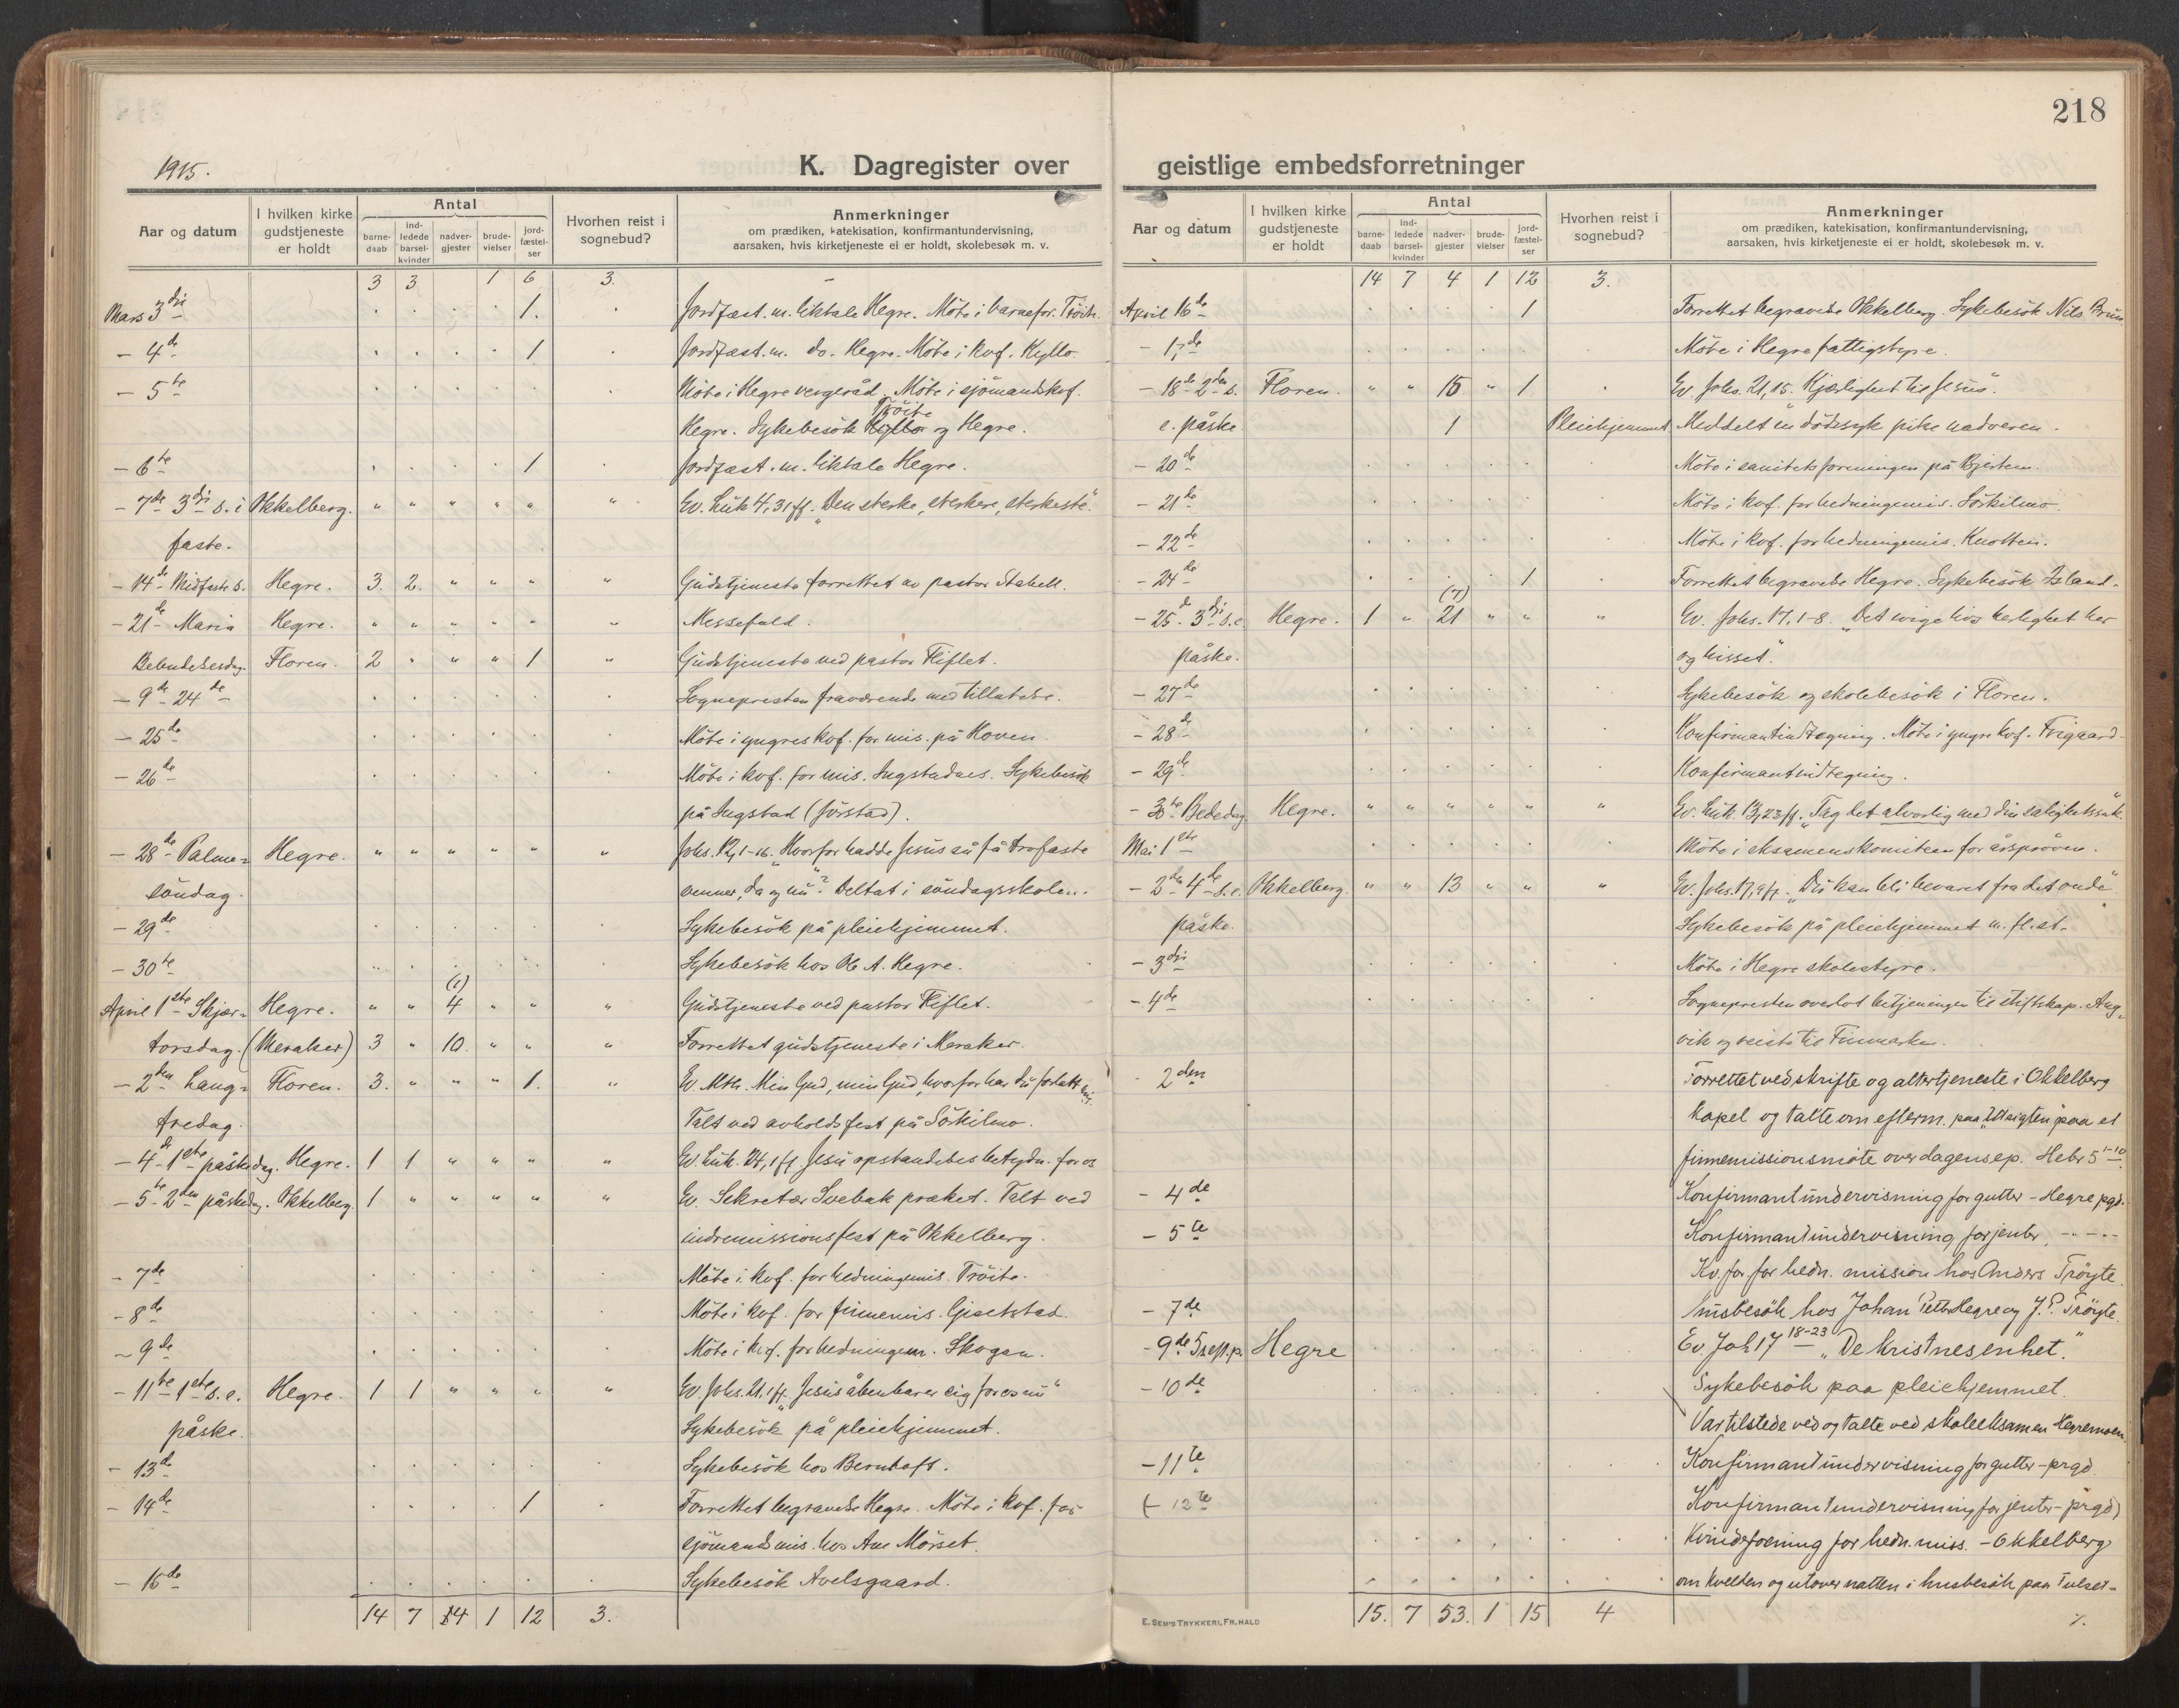 218
1915.
K. Dagregister over geistlige embedsforretninger
Aar og datum
I hvilken kirke gudstjeneste er holdt
Antal
barne-daab
ind-ledede barsel-kvinder
nadver-gjester
brude-vielser
jord-fæstel-ser
Hvorhen reist i sognebud?
Anmerkninger
om prædiken, katekisation, konfirmantundervisning,
aarsaken, hvis kirketjeneste ei er holdt, skolebesøk m. v.
3 3 1 6 3.
Mars 3dje 1. Jordfæst. m. liktale Hegre. Möte i barnefor. Tröite.
- 4de 1 Jordfæst. m. do. Hegre. Möte i kvf. Kyllo.
- 5te Möte i Hegre vergeråd. Möte i sjömandskvf.
Tröite
Hegre. Sykebesök Kyllo og Hegre.
- 6te 1 Jordfæst. m. liktale Hegre.
- 7de 3dje s. i Okkelberg. " " " " " " Ev. Luk 4,31 ff. "Den sterke, sterkere, sterkeste".
faste.
- 14de Midfaste s. Hegre. 3. 2. " " " " Gudstjeneste forrettet av pastor Stabell.
- 21de Maria Hegre. " " " " " " Messefald.
Bebudelsesdag. Floren. 2 " " " 1 " Gudstjeneste ved pastor Fliflet.
- 9de - 24de Sognepresten fraværende med tilladelse.
- 25de Möte i yngres kvf. for mis. på Hoven.
- 26de Möte i kvf. for mis. Ingstadnes. Sykebesök
på Ingstad (Jörstad).
- 28de Palme= Hegre. " " " " " " Johs. 12,1-16. "Hvorfor hadde Jesus så få trofaste
söndag. venner, da og nu"? Deltat i söndagsskolen.
- 29de Sykebesök på pleiehjemmet.
- 30te Sykebesök hos Ole A. Hegre.
(1)
April 1ste Skjær= Hegre. " " 4 " " " Gudstjeneste ved pastor Fliflet.
torsdag. (Meraker) 3 " 10. " " " Forrettet gudstjeneste i Meraker.
- 2den Lang= Floren. 3. " " " 1. " Ev. Mth. Min Gud, min Gud, hvorfor har du forlatt mig.
fredag. Talt ved avholdsfest på Sörkilmo.
- 4de 1ste påskedag. Hegre. 1 1 " " " " Ev. Luk. 24,1 ff Jesu opstandelses betydn. for os
- 5te 2den påskedag. Okkelberg. 1 " " " " " Ev. Sekretær Svebak præket. Talt ved
indremissionsfest på Okkelberg.
- 7de Möte i kvf. for hedningemis. Tröite.
- 8de Möte i kvf. for finnemis. Gjeetstad.
- 9de Möte i kvf. for hedningem. Skogan.
- 11te 1ste s. e. Hegre. 1 1 " " " " Ev. Johs. 21,1 ff. "Jesus åbenbarer sig for os nu"
påske. Sykebesök på pleiehjemmet.
- 13de Sykebesök hos Berntoft.
- 14de 1 Forrettet begravelse Hegre. Möte i kvf. for
sjömandsmis. hos Ane Mörset.
- 15de Sykebesök Avelsgaard.
14 7 14 1 12 3.
Aar og datum
I hvilken kirke gudstjeneste er holdt
Antal
barne-daab
ind-ledede barsel-kvinder
nadver-gjester
brude-vielser
jord-fæstel-ser
Hvorhen reist i sognebud?
Anmerkninger
om prædiken, katekisation, konfirmantundervisning,
aarsaken, hvis kirketjeneste ei er holdt, skolebesøk m. v.
14 7 4 1 12 3.
April 16de 1 Forrettet begravelse Okkelberg. Sykebesök Nils Bruun
- 17de Möte i Hegre fattigstyre.
- 18de 2den s. Floren. " " 15 " 1 Ev. Johs. 21,15. "Kjærlighet til Jesus".
e. påske 1 Pleiehjemmet Meddelt en dödssyk pike nadveren.
- 20de Möte i sanitetsforeningen på Bjertem.
- 21de Möte i kvf. for hedningemis. Sörkilmo.
- 22de Möte i kvf. for hedningemis. Knotten.
- 24de 1 Forrettet begravelse Hegre. Sykebesök Island.
(7)
- 25de 3dje s. e. Hegre. 1 " 21 " " " Ev. Johs. 17,1-8. "Det evige livs herlighet her
påske. og hisset".
- 27de Sykebesök og skolebesök i Floren.
- 28de Konfirmantindtegning. Möte i yngre kvf. Trigaard.
- 29de Konfirmantindtegning.
- 30te Bededag Hegre. " " " " " " Ev. Luk. 13,23 ff. "Tag det alvorlig med din salighetssak"
Mai 1ste Möte i eksamenskomiteen for årspröven.
- 2den 4de s. e. Okkelberg. " " 13 " " " Ev. Johs. 17,9 ff. "Du kan bli bevaret fra det onde"
påske. Sykebesök på pleiehjemmet m. fl. st.
- 3dje Möte i Hegre skolestyre.
- 4de Sognepresten overlot betjeningen til stiftskap. Aug=
vik og reiste til Finmarken.
- 2den Forrettet ved skrifte og altertjeneste i Okkelberg
kapel og talte om efterm. paa "Utsigten" paa et
finnemissionsmöte over dagens ep. Hebr 5 1-10.
- 4de Konfirmantundervisning for gutter - Hegre pgd.
- 5te Konfirmantundervisning for jenter. -..-..
Kv. for. for hedn. mission hos Anders Tröyte.
- 7de Husbesök hos Johan Petter Hegre og J. P. Tröyte.
- 9de 5 s. eft. p. Hegre Ev. Joh 17 18-23 "De kristnes enhet."
- 10de Sykebesök paa pleiehjemmet.
Var tilstede ved og talte ved skoleeksamen Hegremoen.
- 11te Konfirmantundervisning for gutter - prgd.
(- 12te Konfirmantundervisning for jenter - prgd)
Kvindeforening for hedn. miss. - Okkelberg
om kvelden og utover natten i husbesök paa Tulset-
15. 7 53. 1 15 4
E. SEM'S TRYKKERI, FR.HALD